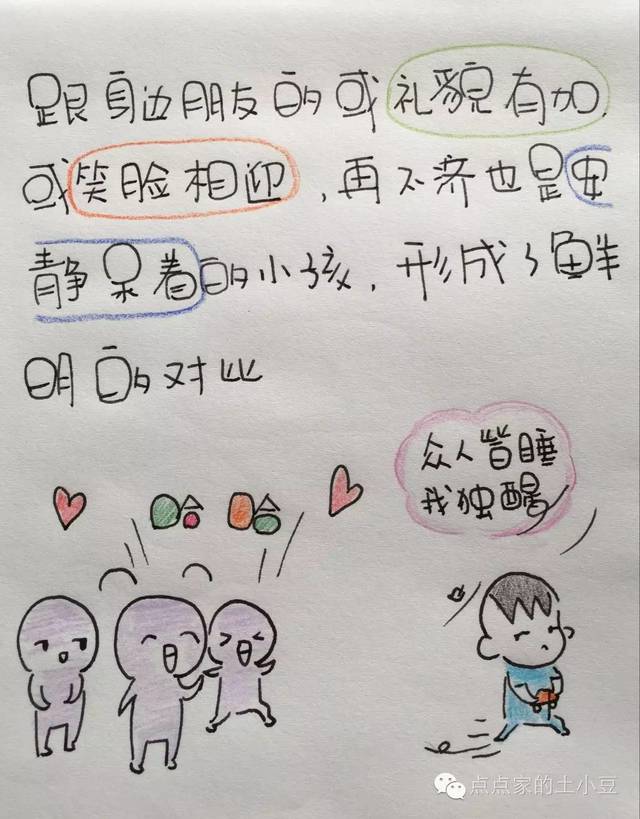 跟身边朋友的或礼貌有加,
或笑脸相迎,再不济也是安
静呆着的小孩,形成了鲜
明的对比
众人皆睡
我独醒
哈 哈
点点家的土小豆